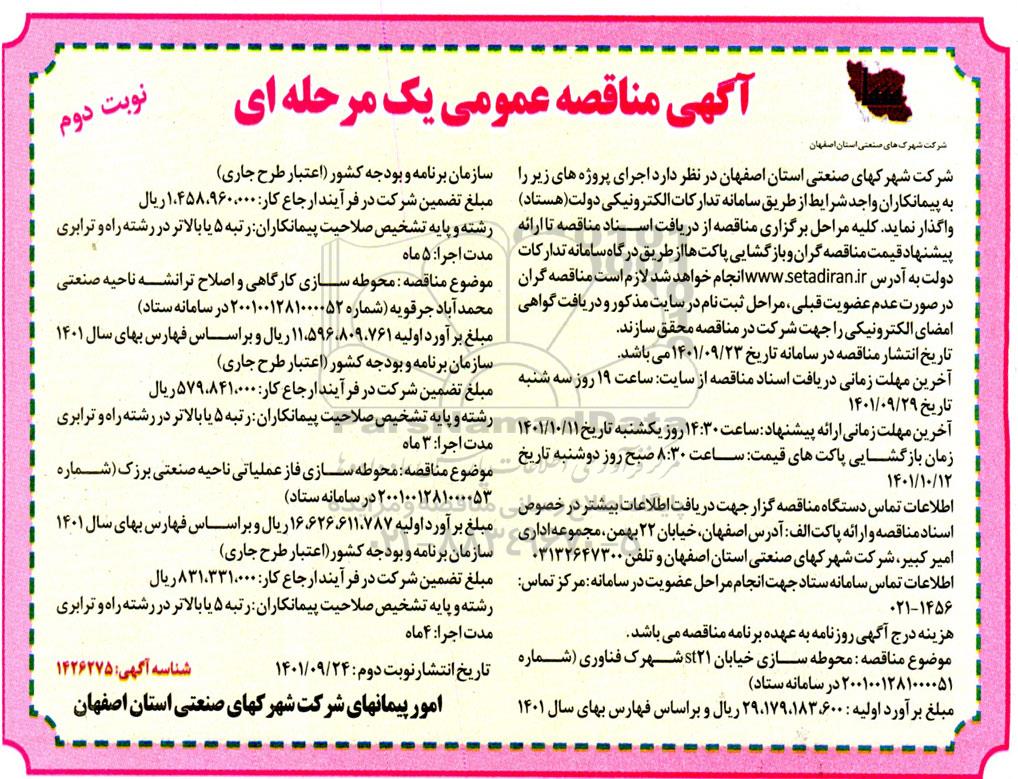 آگهی مناقصه عمومی یک مرحله ای
نوبت دوم
شرکت شهرک های صنعتی استان اصفهان
شرکت شهرکهای صنعتی استان اصفهان در نظر دارد اجرای پروژه های زیر را
به پیمانکاران واجد شرایط از طریق سامانه تدارکات الکترونیکی دولت (هستاد)
واگذار نماید. کلیه مراحل برگزاری مناقصه از دریافت اسناد مناقصه تا ارائه
پیشنهاد قیمت مناقصه گران و بازگشایی پاکت ها از طریق درگاه سامانه تدارکات
دولت به آدرس www.setadiran.ir انجام خواهد شد لازم است مناقصه گران
در صورت عدم عضویت قبلی، مراحل ثبت نام در سایت مذکور و دریافت گواهی
امضای الکترونیکی را جهت شرکت در مناقصه محقق سازند.
تاریخ انتشار مناقصه در سامانه تاریخ ۱۴۰۱/۰۹/۲۳ می باشد.
آخرین مهلت زمانی دریافت اسناد مناقصه از سایت: ساعت ۱۹ روز سه شنبه
تاریخ ۱۴۰۱/۰۹/۲۹
آخرین مهلت زمانی ارائه پیشنهاد: ساعت ۱۴:۳۰ روز یکشنبه تاریخ ۱۴۰۱/۱۰/۱۱
زمان بازگشایی پاکت های قیمت: ساعت ۸:۳۰ صبح روز دوشنبه تاریخ
۱۴۰۱/۱۰/۱۲
اطلاعات تماس دستگاه مناقصه گزار جهت دریافت اطلاعات بیشتر در خصوص
اسناد مناقصه و ارائه پاکت الف: آدرس اصفهان، خیابان ۲۲ بهمن، مجموعه اداری
امیر کبیر، شرکت شهرکهای صنعتی استان اصفهان و تلفن ۰۳۱۳۲۶۴۷۳۰۰
اطلاعات تماس سامانه ستاد جهت انجام مراحل عضویت در سامانه: مرکز تماس:
۰۲۱-۱۴۵۶
هزینه درج آگهی روزنامه به عهده برنامه مناقصه می باشد.
موضوع مناقصه: محوطه سازی خیابان st۲۱ شهرک فناوری (شماره
۲۰۰۱۰۰۱۲۸۱۰۰۰۰۵۱ در سامانه ستاد)
مبلغ برآورد اولیه: ۲۹،۱۷۹،۱۸۳،۶۰۰ ریال و براساس فهارس بهای سال ۱۴۰۱
سازمان برنامه و بودجه کشور (اعتبار طرح جاری)
مبلغ تضمین شرکت در فرآیند ارجاع کار: ۱،۴۵۸،۹۶۰،۰۰۰ ریال
رشته و پایه تشخیص صلاحیت پیمانکاران: رتبه ۵ یا بالاتر در رشته راه و ترابری
مدت اجرا: ۵ ماه
موضوع مناقصه: محوطه سازی کارگاهی و اصلاح ترانشه ناحیه صنعتی
محمدآباد جرقویه (شماره ۲۰۰۱۰۰۱۲۸۱۰۰۰۰۵۲ در سامانه ستاد)
مبلغ برآورد اولیه ۱۱،۵۹۶،۸۰۹،۷۶۱ ریال و براساس فهارس بهای سال ۱۴۰۱
سازمان برنامه و بودجه کشور (اعتبار طرح جاری)
مبلغ تضمین شرکت در فرآیند ارجاع کار: ۵۷۹،۸۴۱،۰۰۰ ریال
رشته و پایه تشخیص صلاحیت پیمانکاران: رتبه ۵ یا بالاتر در رشته راه و ترابری
مدت اجرا: ۳ ماه
موضوع مناقصه: محوطه سازی فاز عملیاتی ناحیه صنعتی برزک (شماره
۲۰۰۱۰۰۱۲۸۱۰۰۰۰۵۳ در سامانه ستاد)
مبلغ برآورد اولیه ۱۶،۶۲۶،۶۱۱،۷۸۷ ریال و براساس فهارس بهای سال ۱۴۰۱
سازمان برنامه و بودجه کشور (اعتبار طرح جاری)
مبلغ تضمین شرکت در فرآیند ارجاع کار: ۸۳۱،۳۳۱،۰۰۰ ریال
رشته و پایه تشخیص صلاحیت پیمانکاران: رتبه ۵ یا بالاتر در رشته راه و ترابری
مدت اجرا: ۴ ماه
تاریخ انتشار نوبت دوم: ۱۴۰۱/۰۹/۲۴
شناسه آگهی: ۱۴۲۶۲۷۵
امور پیمانهای شرکت شهرکهای صنعتی استان اصفهان
ParsNamadData
۰۲۱-۸۸۳۴۹۶۷۰-۵